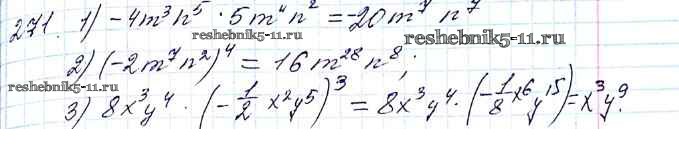 271. 1) -4m³n⁵ · 5m⁴n² = -20m⁷n⁷
reshebnik5-11.ru
reshebnik5-11.ru
2) (-2m⁷n²)⁴ = 16m²⁸n⁸;
reshebnik5-11.ru
3) 8x³y⁴ · (-1/2 x²y⁵)³ = 8x³y⁴ · (-1/8 x⁶y¹⁵) = x³y⁹.